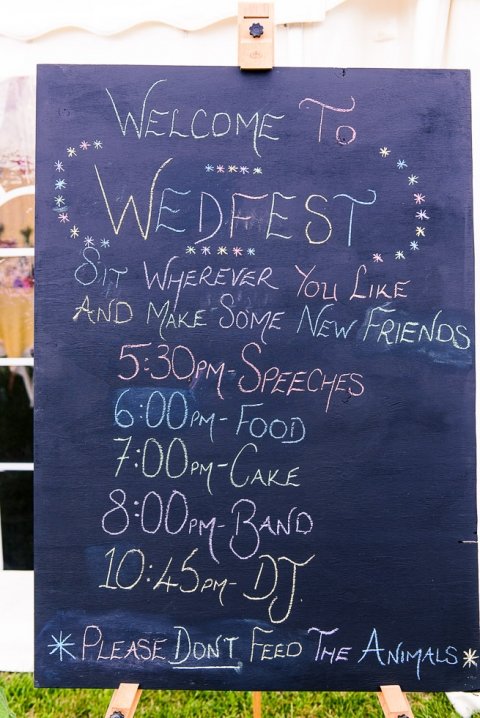 Welcome To
WedFest
Sit Wherever You Like
And Make Some New Friends
5:30pm - Speeches
6:00pm - Food
7:00pm - Cake
8:00pm - Band
10:45pm - DJ
* Please Don't Feed The Animals *